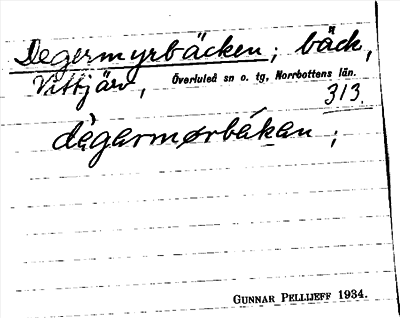 Degermyrbäcken; bäck,
Vittjärv, Överluleå sn o. tg, Norrbottens län.
313.
dègarmørbä́kan ;
GUNNAR PELLIJEFF 1934.